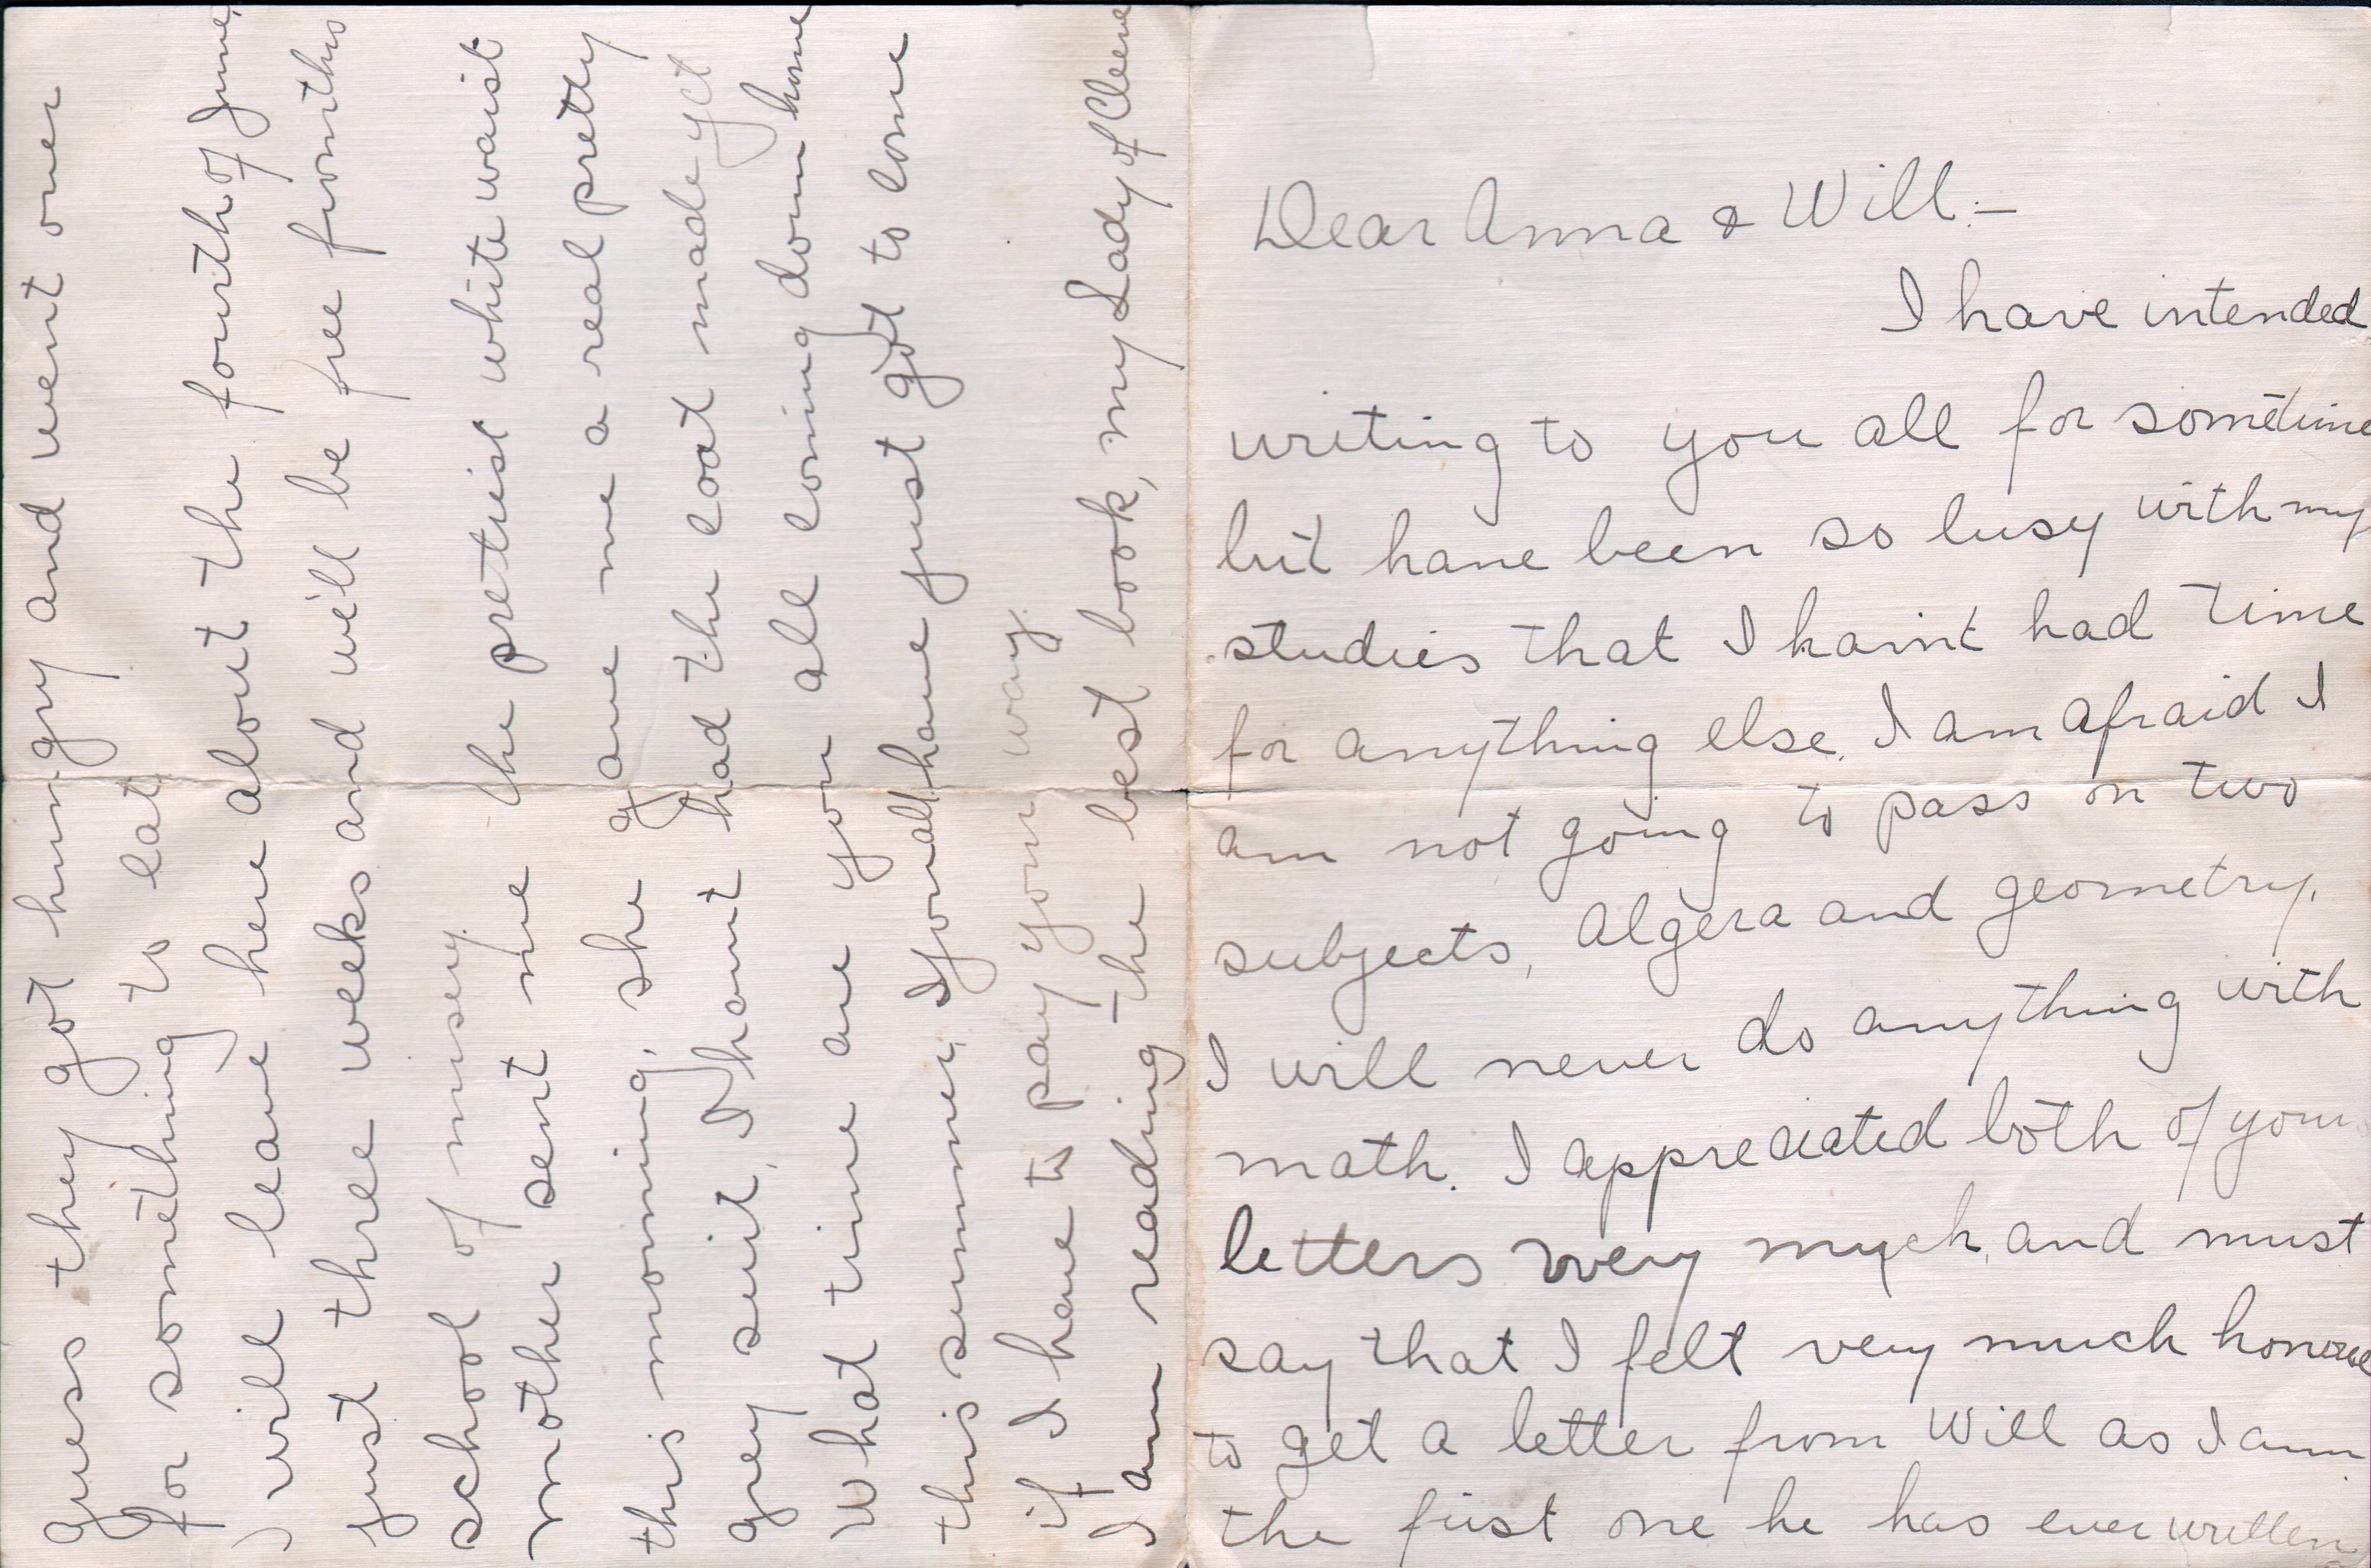 Dear Anna & Will:—
I have intended
writing to you all for sometime
but have been so busy with my
studies that I hain't had time
for anything else. I am afraid I
am not going to pass on two
subjects, Algera and geometry.
I will never do anything with
math. I appreciated both of your
letters very much, and must
say that I felt very much
to get a letter from Will as I am
the first one he has ever written
guess they got hungry and went over
for something to eat
I will leave here about the fourth of June,
just three weeks and will be free from this
school of misery.
Mother sent me the pretiest white waist
this morning, she gave me a real pretty
grey suit, I haint had the coat made yet
What time are you all coming down home
this summer, You all have just got to come
if I have to pay your way.
I am reading the best book, my Lady of Cleeve